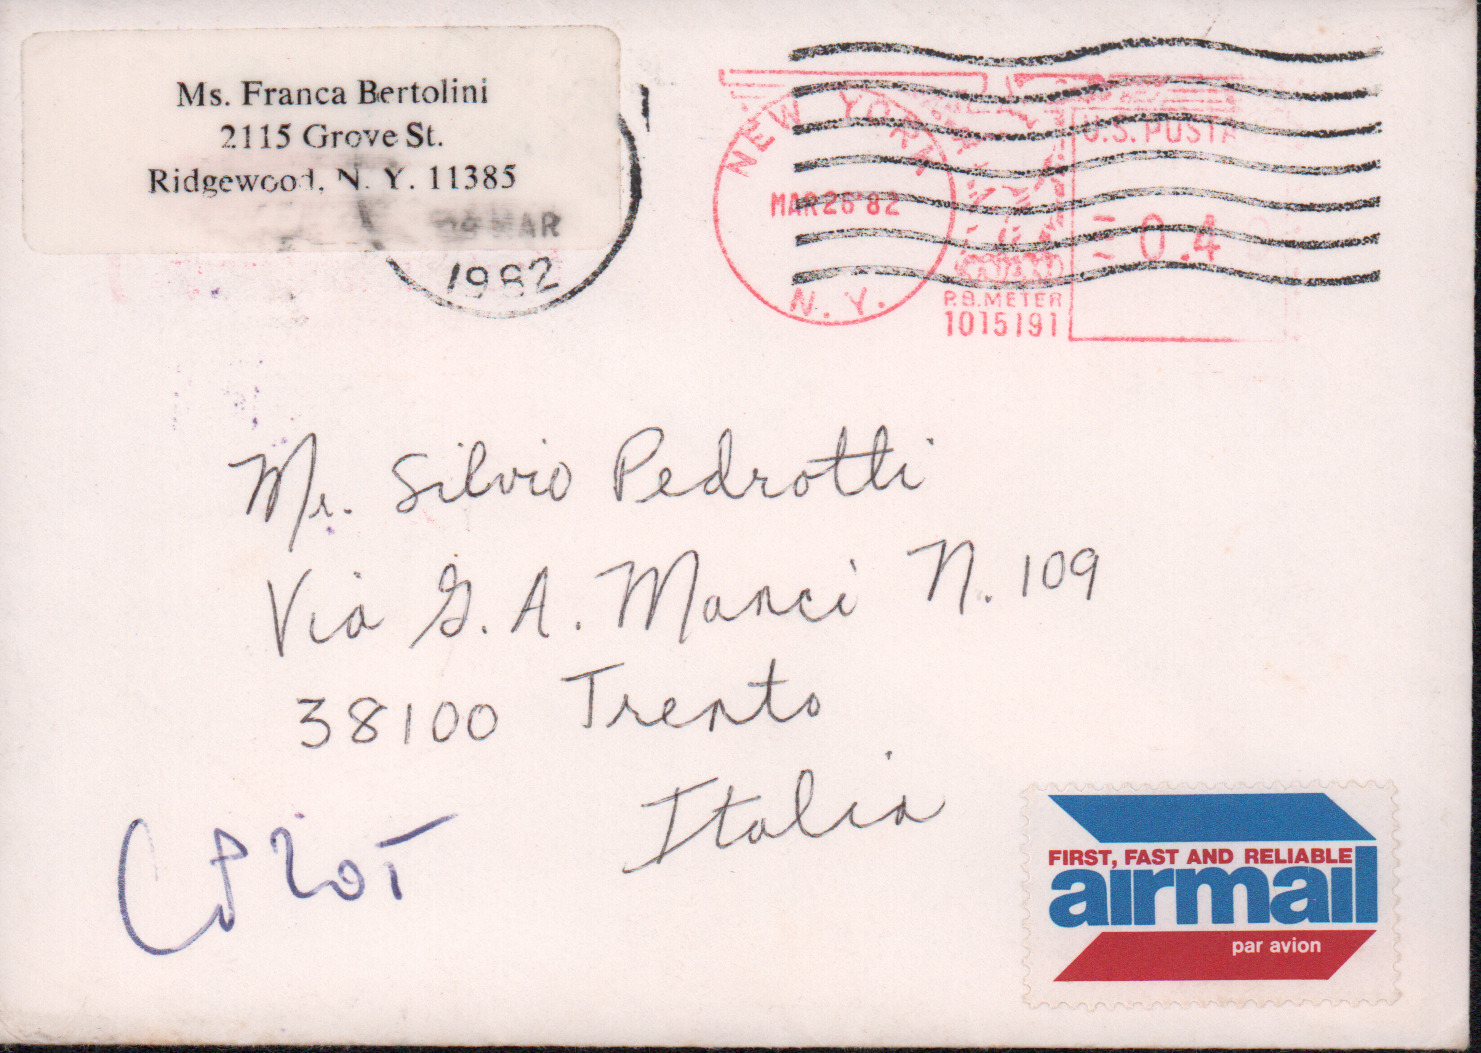 Ms. Franca Bertolini
2115 Grove St.
Ridgewood, N. Y. 11385
MAR
1982
NEW YORK
MAR 26 '82
N. Y.
U.S. POSTA
0.4
P.B. METER
1015191
Mr. Silvio Pedrotti
Via G. A. Manci N. 109
38100 Trento
Italia
FIRST, FAST AND RELIABLE
airmail
par avion